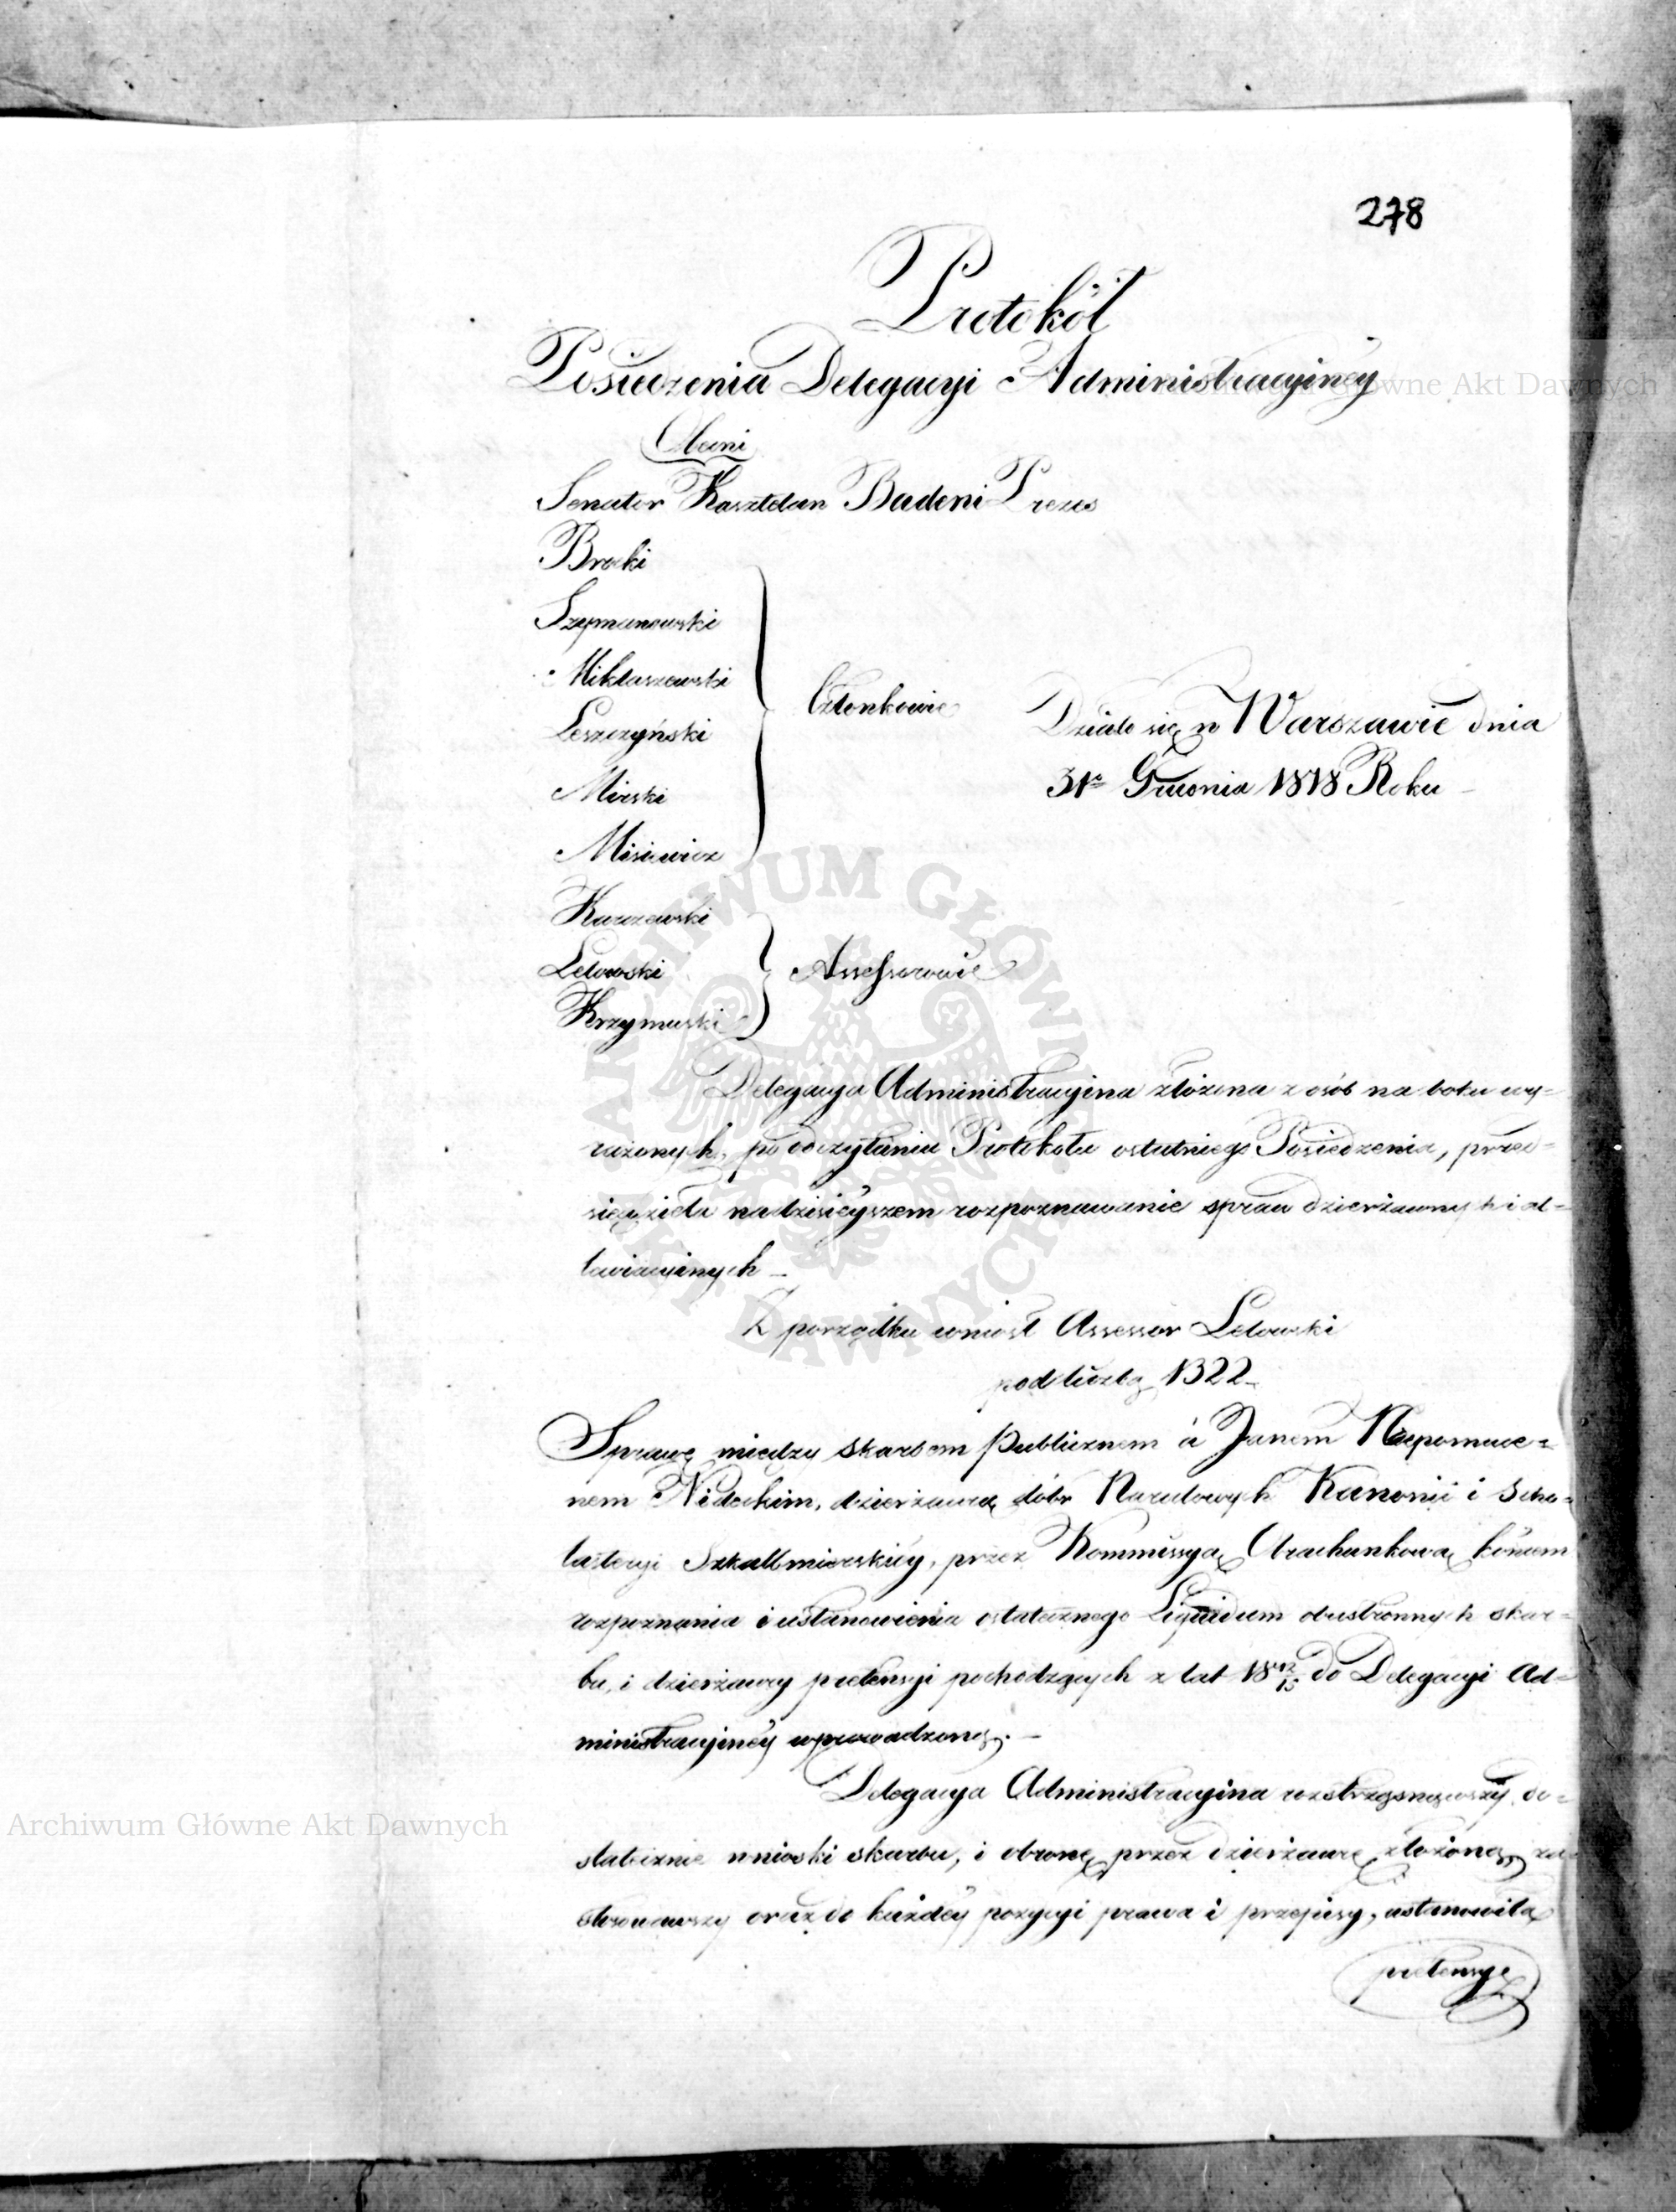 278
Protokół
Posiedzenia Delegacyi Administracyinéy
Obecni
Senator Kasztelan Badeni Prezes
Brocki
Szymanowski
Miklaszewski
Leszczyński
Mirski
Misiewicz
Członkowie
Działo się w Warszawie dnia
31º Grudnia 1818 Roku
Kurzewski
Letowski
Krzymuski
Assessorowie
Delegacya Administracyina złożona z osób na boku wy-
rażonych, po odczytaniu Protokołu ostatniego Posiedzenia, przed-
sięwzięła na dzisieyszem rozpoznawanie spraw dzierżawnych i al-
lewiacyinych –
Z porządku wniosł Assessor Letowski
pod liczbą 1322 –
Sprawę między skarbem Publicznem á Janem Nepomuce-
nem Nideckim, dzierżawcą dóbr Narodowych Kanonii i Scho-
lasteryi Szkalbmierskiéy, przez Kommissyą Obrachunkową końcem
rozpoznania i ustanowienia ostatecznego Liquidum obustronnych skar-
bu, i dzierżawcy pretensyi pochodzących z lat 18 12/15 do Delegacyi Ad-
ministracyinéy wprowadzoną. –
Delegacya Administracyina roztrząsnąwszy do-
statecznie wnioski skarbu, i obronę przez dzierżawcę złożoną, za
stosowawszy oraz do każdéy pozycyi prawa i przepisy, ustanowiła
pretensye
Archiwum Główne Akt Dawnych
ARCHIWUM GŁÓWNE AKT DAWNYCH
Główne Akt Dawnych